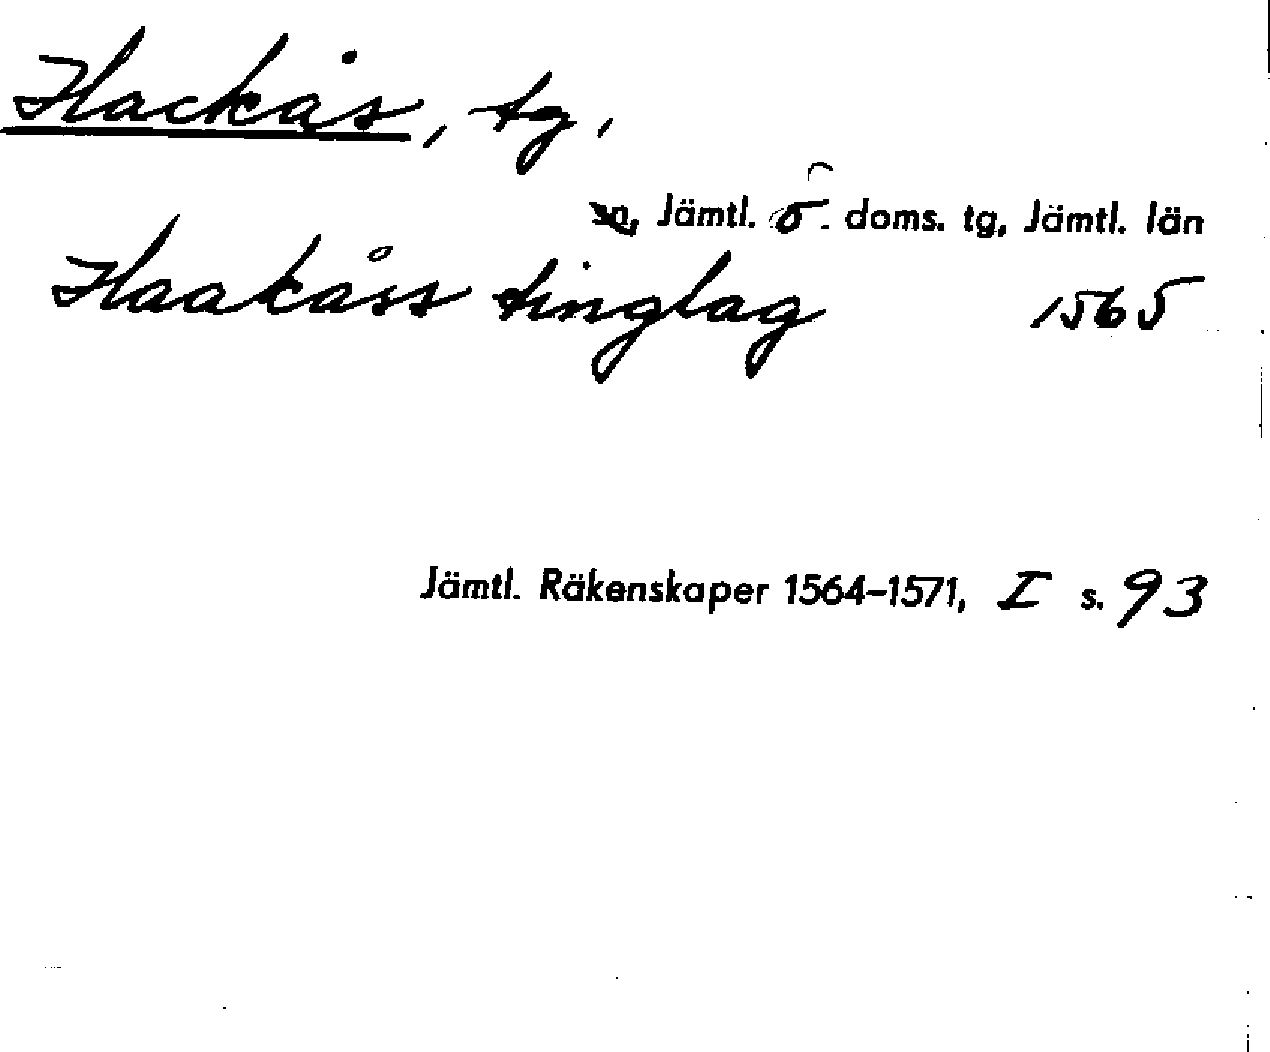 Hackås, tg,
sn, Jämtl. ö. doms. tg, Jämtl. län
Haakåss tinglag 1565
Jämtl. Räkenskaper 1564–1571, I s. 93